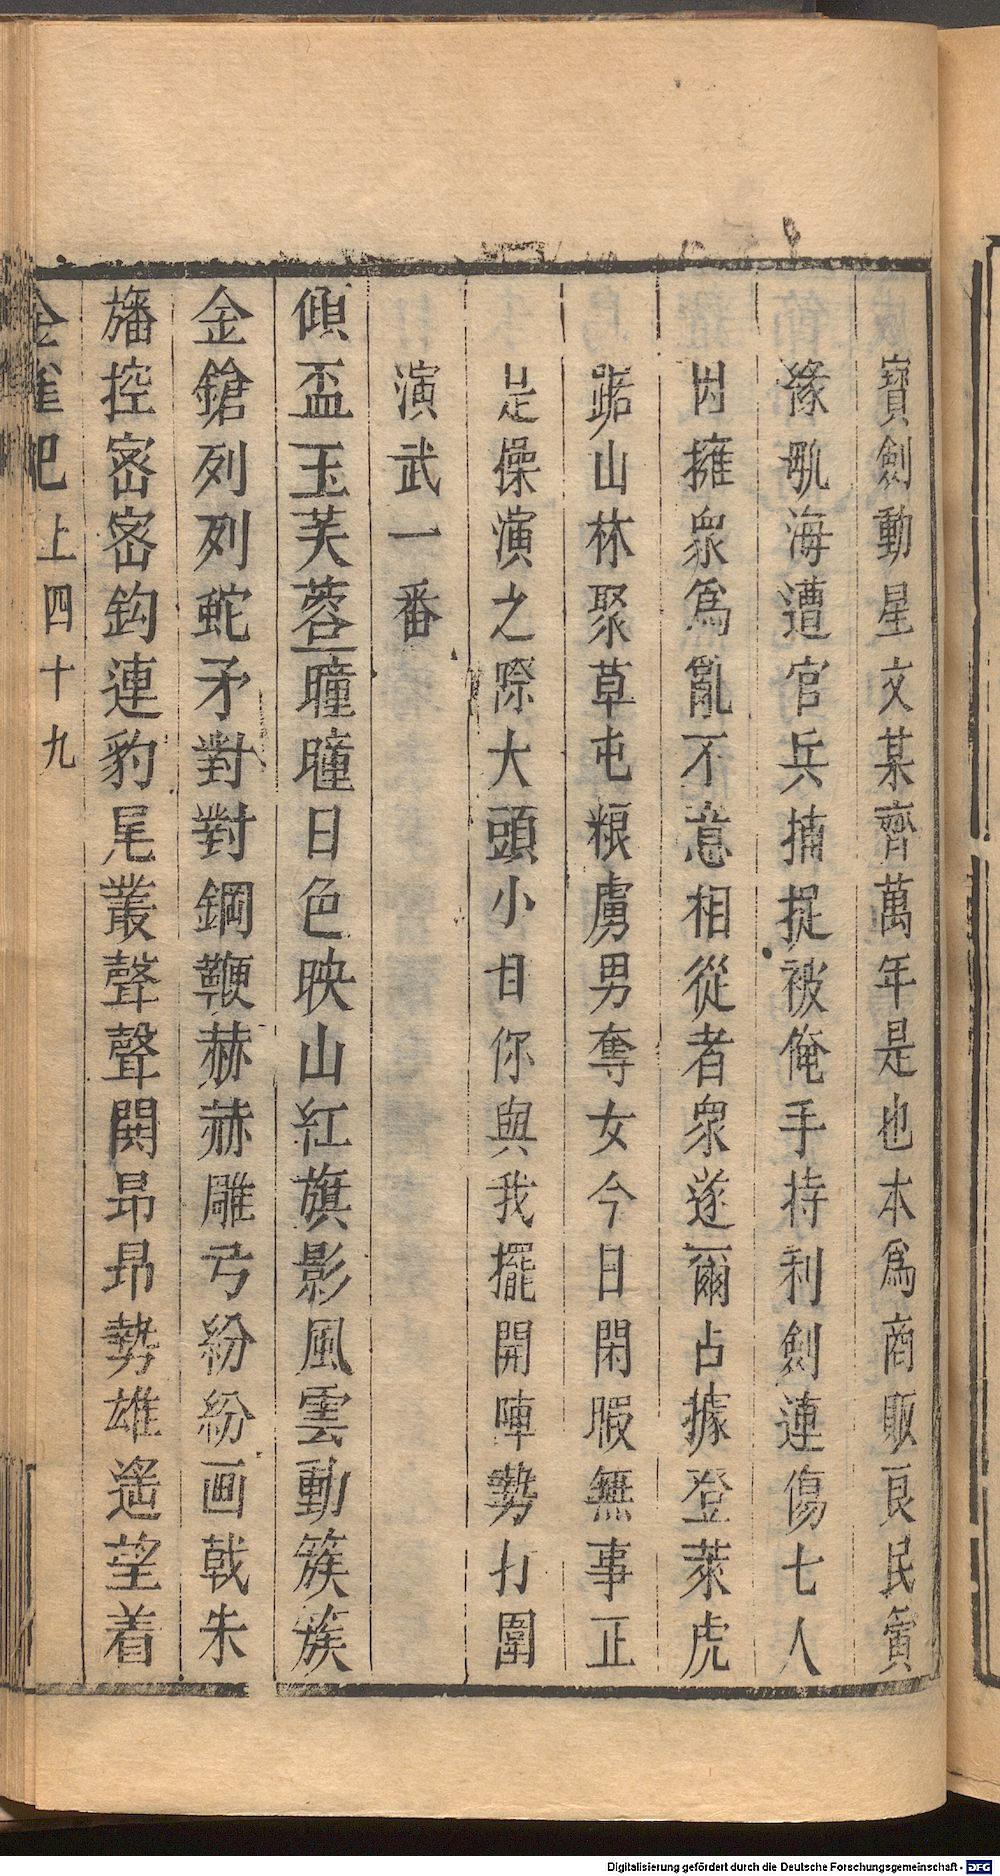 寳劍動星文某齊萬年是也本爲商販良民
豫𭅺海遭官兵捕捉被俺手持利劍連傷七人
因擁衆爲亂不意相從者衆遂爾占據登萊虎
踞山林聚草屯粮虜男奪女今日閑暇無事正
是操演之際大頭小目你與我擺開陣勢打圍
演武一番
傾盃玉芙蓉曈曈日色映山紅旗影風雲動簇簇
金鎗列列蛇矛對對鋼鞭赫赫雕弓紛紛画戟朱
旛控密密鈎連豹尾叢聲聲閧昂昂勢雄遙望着
金雀記
上四十九
Digitalisierung gefördert durch die Deutsche Forschungsgemeinschaft - DFG